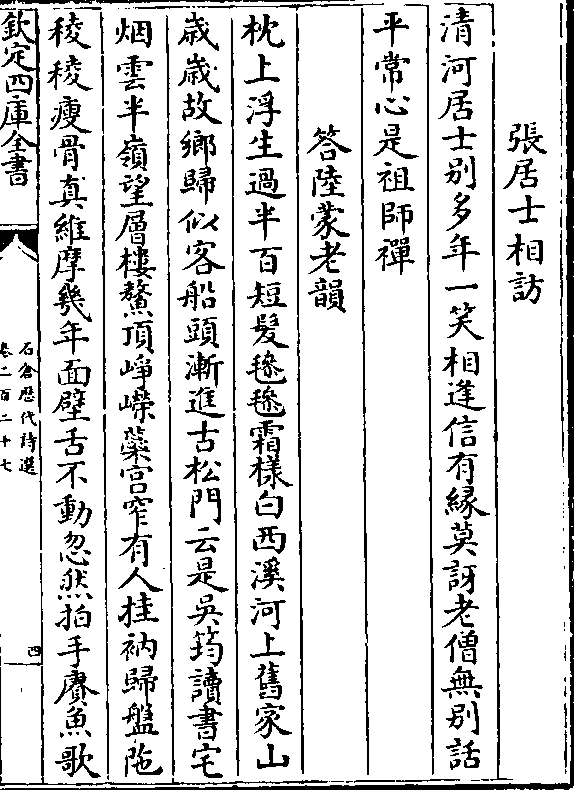 張居士相訪
清河居士别多年一笑相逢信有縁莫訝老僧無别話
平常心是祖師禪
答陸蒙老韻
枕上浮生過半百短髮毶毶霜様白西溪河上舊家山
歳歳故鄉歸似客船頭漸進古松門云是吳筠讀書宅
烟雲半嶺望層樓鰲頂崢嶸蘂宫窄有人挂衲歸盤陁
稜稜瘦骨真維摩幾年面壁舌不動忽然拍手賡魚歌
欽定四庫全書
石倉歴代詩選
卷二百二十七
四